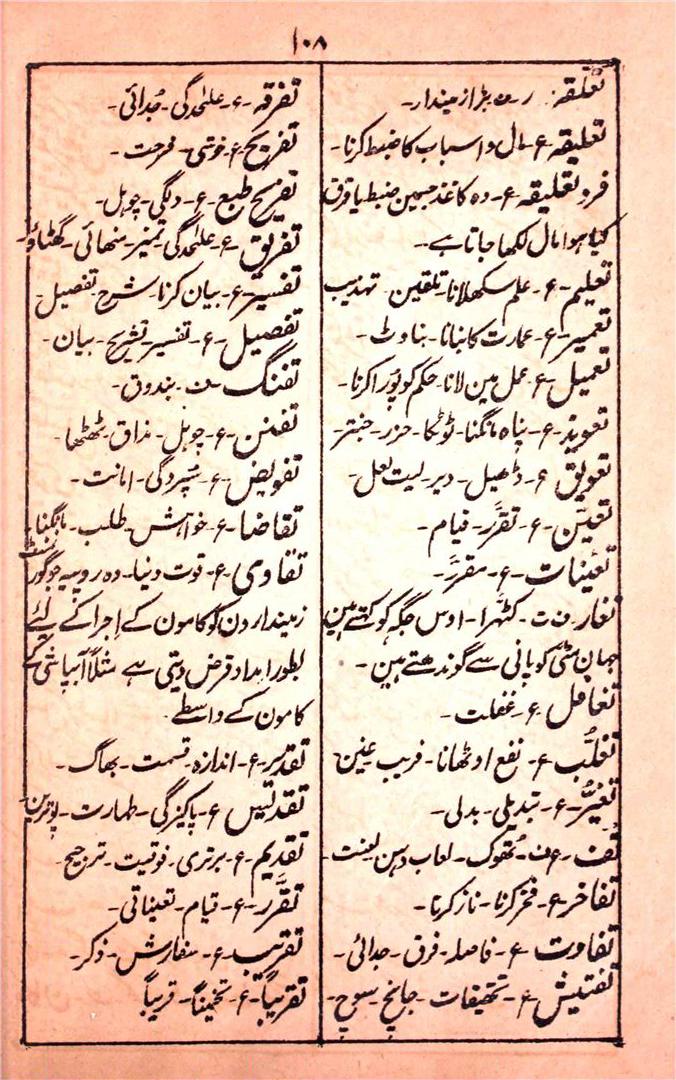 ۱۰۸
تعلقہ - ر - ت بڑا زمیندار -
تعلیقہ - ع - مال و اسباب کا ضبط کرنا -
فرد تعلیقہ - ع - وہ کاغذ جسمین ضبط یا قرق
کیا ہوا مال لکھا جاتا ہے -
تعلیم - ع - علم سکھلانا - تلقین - تہذیب
تعمیر - ع - عمارت کا بنانا - بناوٹ -
تعمیل - ع - عمل مین لانا - حکم کو پُورا کرنا -
تعویذ - ع - پناہ مانگنا - ٹوٹکا - حرز - جنتر -
تعویق - ع - ڈھیل - دیر - لیت لعل -
تعیّن - ع - تقرّر - قیام -
تعینات - ع - مقرّر -
تغار - ف ت - کٹہرا - اوس جگہ کو کہتے ہین
جہان مٹّی کو پانی سے گوندھتے ہین -
تغافل - ع - غفلت -
تغلّب - ع - نفع اوٹھانا - فریب - غبن
تغیّر - ع - تبدیلی - بدلی -
تُف - ع ف - تُھوک - لعاب دہن - لعنت -
تفاخر - ع - فخر کرنا - ناز کرنا -
تفاوت - ع - فاصلہ - فرق - جدائی -
تفتیش - ع - تحقیقات - جانچ - سوچ -
تفرقہ - ع - علٰحدگی - جُدائی -
تفریح - ع - خوشی - فرحت -
تفریح طبع - ع - دلگی - چوہل -
تفریق - ع - علٰحدگی - تمیز - منہائی - گھٹاؤ -
تفسیر - ع - بیان کرنا - شرح - تفصیل -
تفصیل - ع - تفسیر - تشریح - بیان -
تفنگ - ف - بندوق -
تفنّن - ع - چوہل - مذاق - ٹھٹھا -
تفویض - ع - سپُردگی - امانت -
تقاضا - ع - خواہش - طلب - مانگنا -
تقاوی - ع - قوت دینا - وہ روپیہ جو گورنمنٹ
زمیندارون کو کامون کے اِجرا کے لئے
بطور امداد قرض دیتی ہے مثلاً آبپاشی کے
کامون کے واسطے -
تقدیر - ع - اندازہ - قسمت - بھاگ -
تقدیس - ع - پاکیزگی - طہارت - پوترپن -
تقدیم - ع - برتری - فوقیت - ترجیح -
تقرّر - ع - قیام - تعیناتی -
تقریب - ع - سفارش - ذکر -
تقریباً - ع - تخمیناً - قریباً